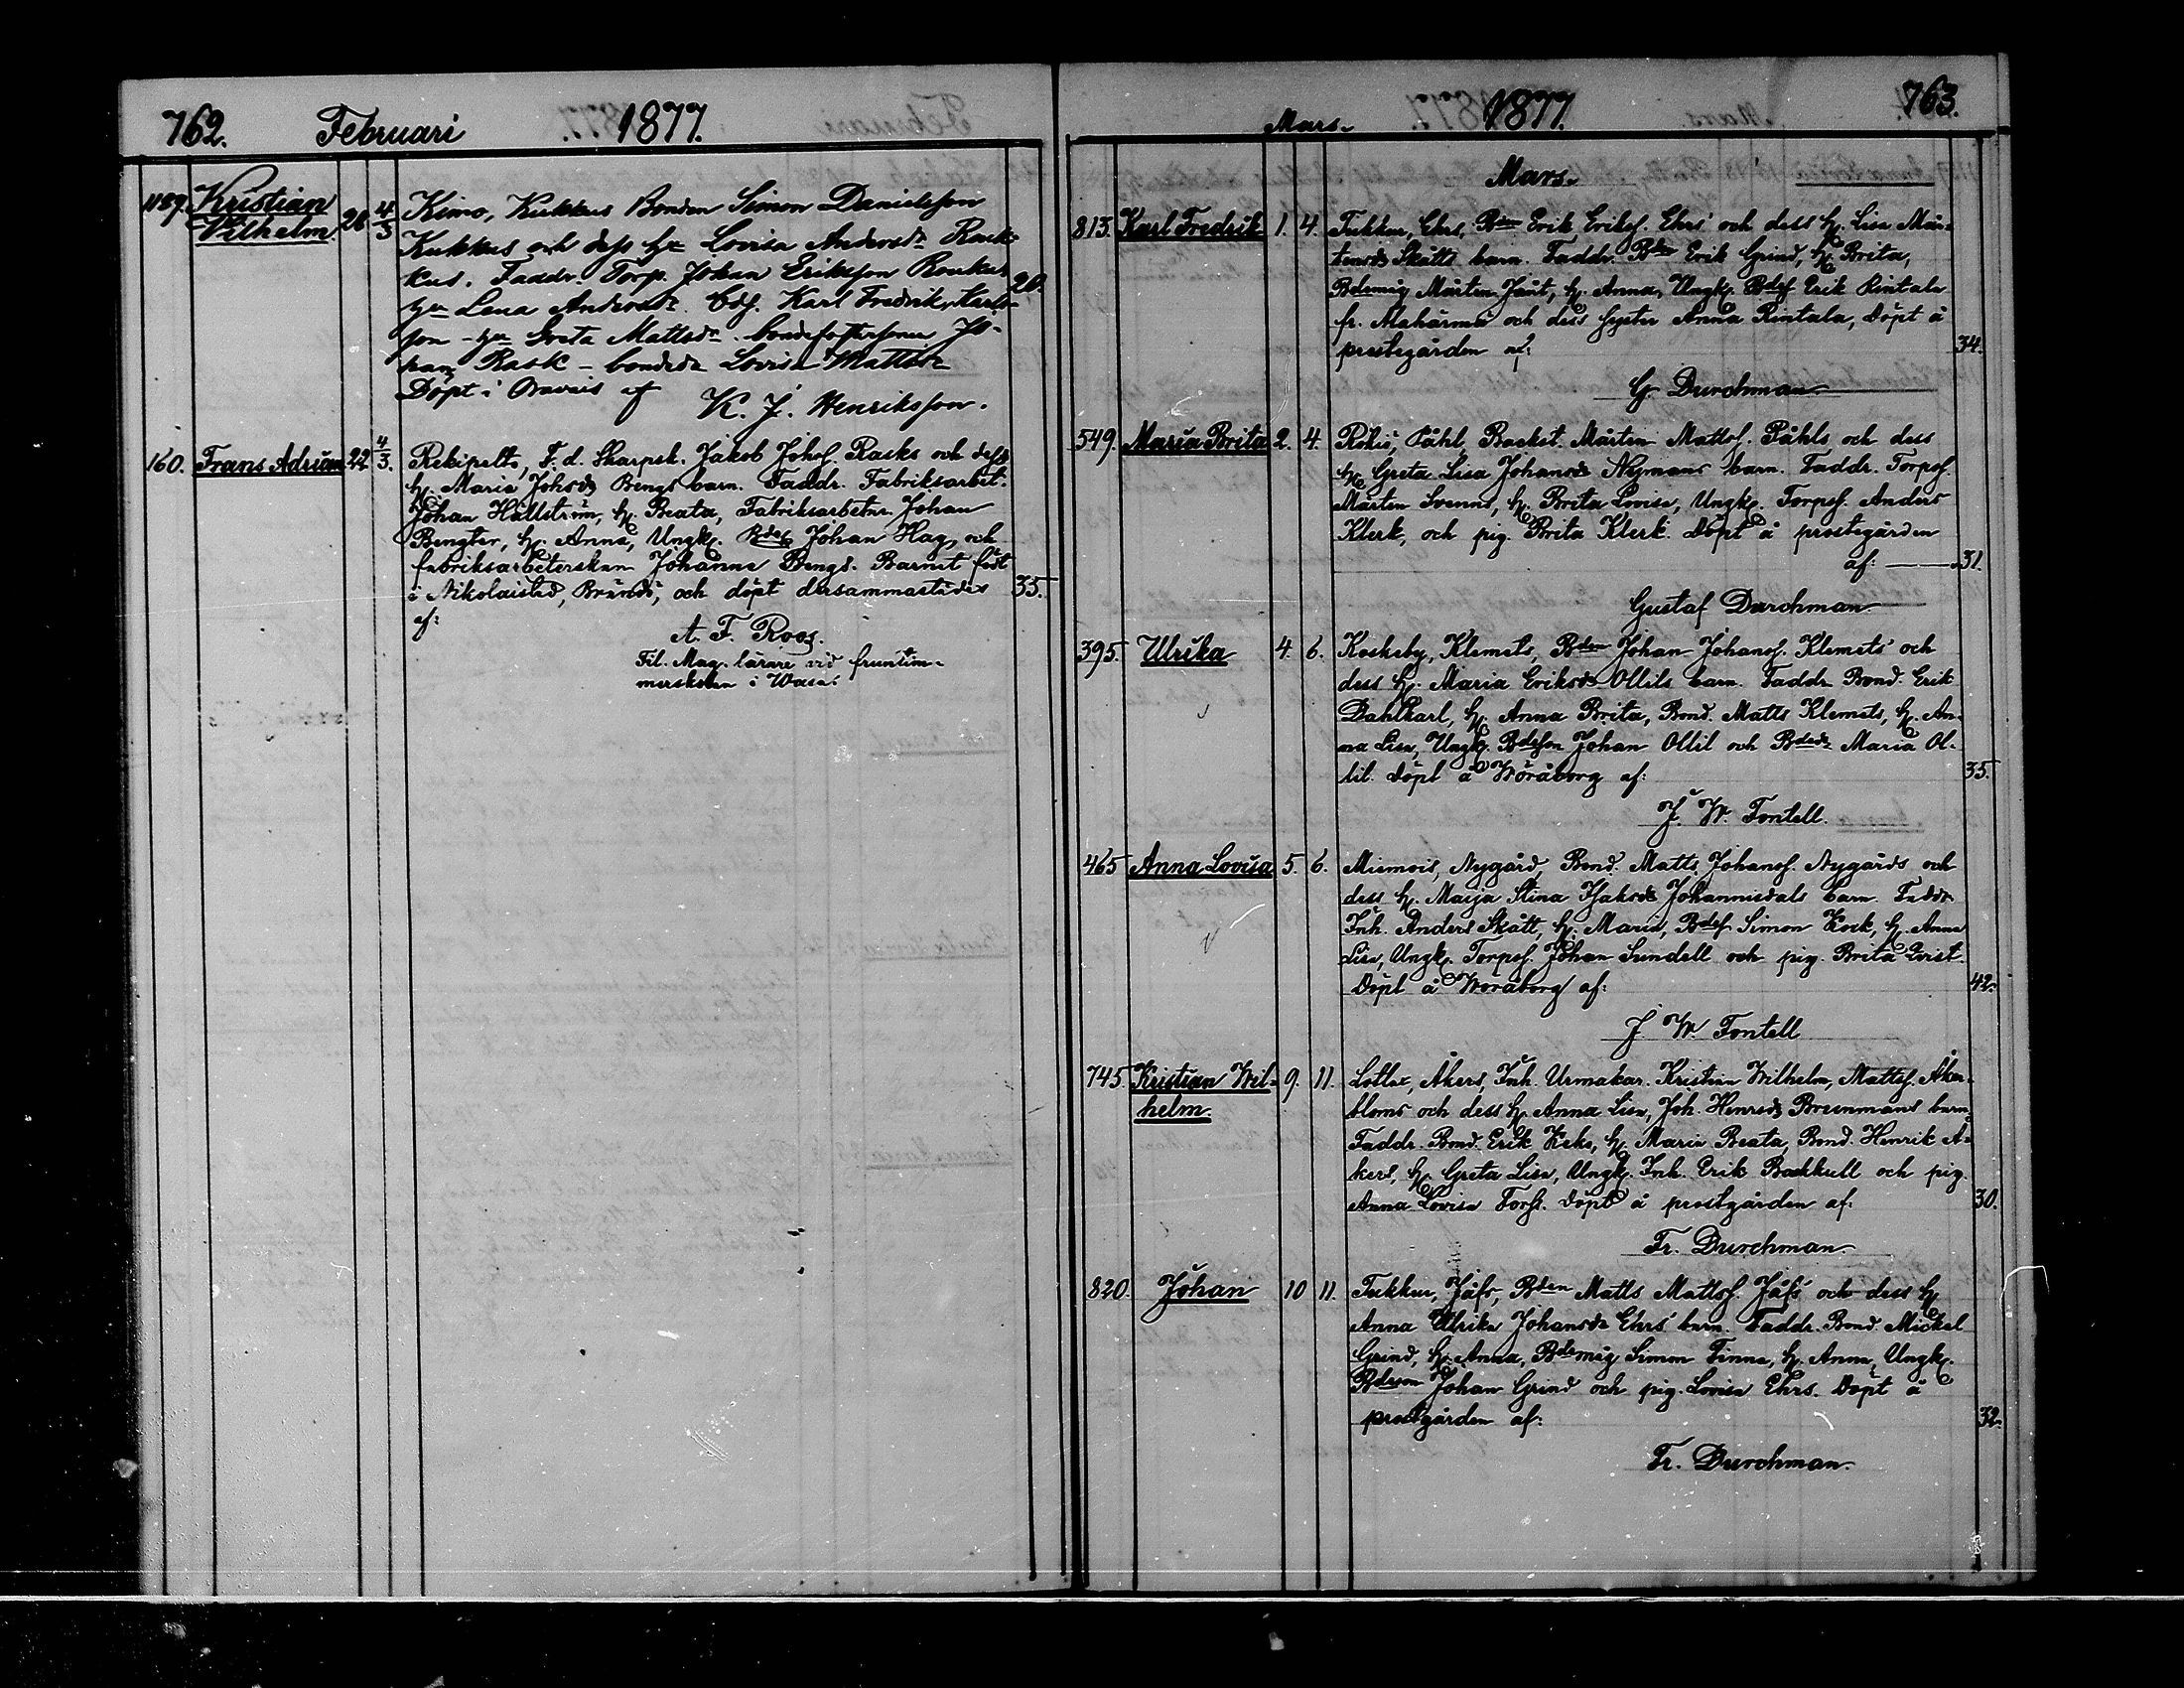 762. Februari 1877.
1189. Kristian Vilhelm. 28 4/3 Kimo, Kukkus Bonden Simon Danielsson
Kukkus och dess hu Lovisa Andersdr Rouk-
kus. Faddr. Torp. Johan Eriksson Roukus
hu Lena Andersdr. Bds. Karl Fredrik Karls-
son - hu Greta Mattsdr. bonde Jo-
han Rask - bondedr Lovisa Mattsdr 20.
Döpt i Oravais af
K. J. Henriksson.
160. Frans Adrian 22 4/3. Rekipelto, F. d. Skarpsk. Jakob Johss. Rasks och dess
h. Maria Johsdr Bengs barn. Faddr. Fabriksarbet.
Johan Hällström, h. Beata, Fabriksarbetar. Johan
Bengter, h. Anna, Ungk. Bdes. Johan Hag, och
fabriksarbeterskan Johanna Bengs. Barnet födt
i Nikolaistad, Brändö, och döpt dersammastädes 35.
af:
A. F. Roos.
Fil. Mag. lärare vid fruntim-
merskolan i Wasa.
Mars. 1877. 763.
Mars.
813. Karl Fredrik 1. 4. Tukkur, Ehrs, Bden Erik Eriks. Ehrs och dess h. Lisa Mår-
tensdr Skåtts barn. Faddr. Bden Erik Grind, h. Brita,
Bdemåg Mårten Jåut, h. Anna, Ungk. Bdes. Erik Rintala
fr. Mahärmä och dess syster Anna Rintala, Döpt å
prostegården af: 34.
G. Durchman
549. Maria Brita 2. 4. Rökiö, Påhl, Backst. Mårten Matts. Påhls och dess
h. Greta Lisa Johansdr Nymans barn. Faddr. Torps.
Mårten Svenns, h. Brita Lovisa, Ungk. Torps. Anders
Klerk, och pig. Brita Klerk. Döpt å prostegården
af: 31.
Gustaf Durchman
395. Ulrika 4. 6. Koskeby, Klemets, Bden Johan Johans. Klemets och
dess h. Maria Eriksdr Ollils barn. Faddr Bond. Erik
Dahlkarl, h. Anna Brita, Bond. Matts Klemets, h. An-
na Lisa, Ungk. Bdeson Johan Ollil och Bdedr Maria Ol-
lil. Döpt å Wöråborg af: 35.
J. W. Fontell.
465 Anna Lovisa 5. 6. Miemois, Nygård, Bond. Matts Johans. Nygårds och
dess h. Maija Stina Isaksdr Johannisdals barn. Faddr
Inh. Anders Skått, h. Maria, Bdes. Simon Kock, h. Anna
Lisa, Ungk. Torps. Johan Sundell och pig. Brita Qvist.
Döpt å Woråborg af: 42.
J. W. Fontell
745. Kristian Wil-
helm. 9. 11. Lotlax, Åkers, Inh. Urmakar. Kristian Wilhelm, Matts. Åker-
bloms och dess h. Anna Lisa, Joh. Henrsdr Brennmans barn,
Faddr. Bond. Erik Keko, h. Maria Beata, Bond. Henrik Å-
kers, h. Greta Lisa, Ungk. Inh. Erik Backkull och pig.
Anna Lovisa Forss. Döpt å prostgården af: 30.
Fr. Durchman.
820. Johan 10 11. Tukkur, Jåfs, Bden Matts Matts. Jåfs och dess h
Anna Ulrika Johansdr Ehrs barn. Faddr. Bond. Mickel
Grind, h. Anna, Bdemåg Simon Finne, h. Anna, Ungk.
Bdeson Johan Grind och pig. Lovisa Ehrs. Döpt å
prostgården af: 32.
Fr. Durchman.